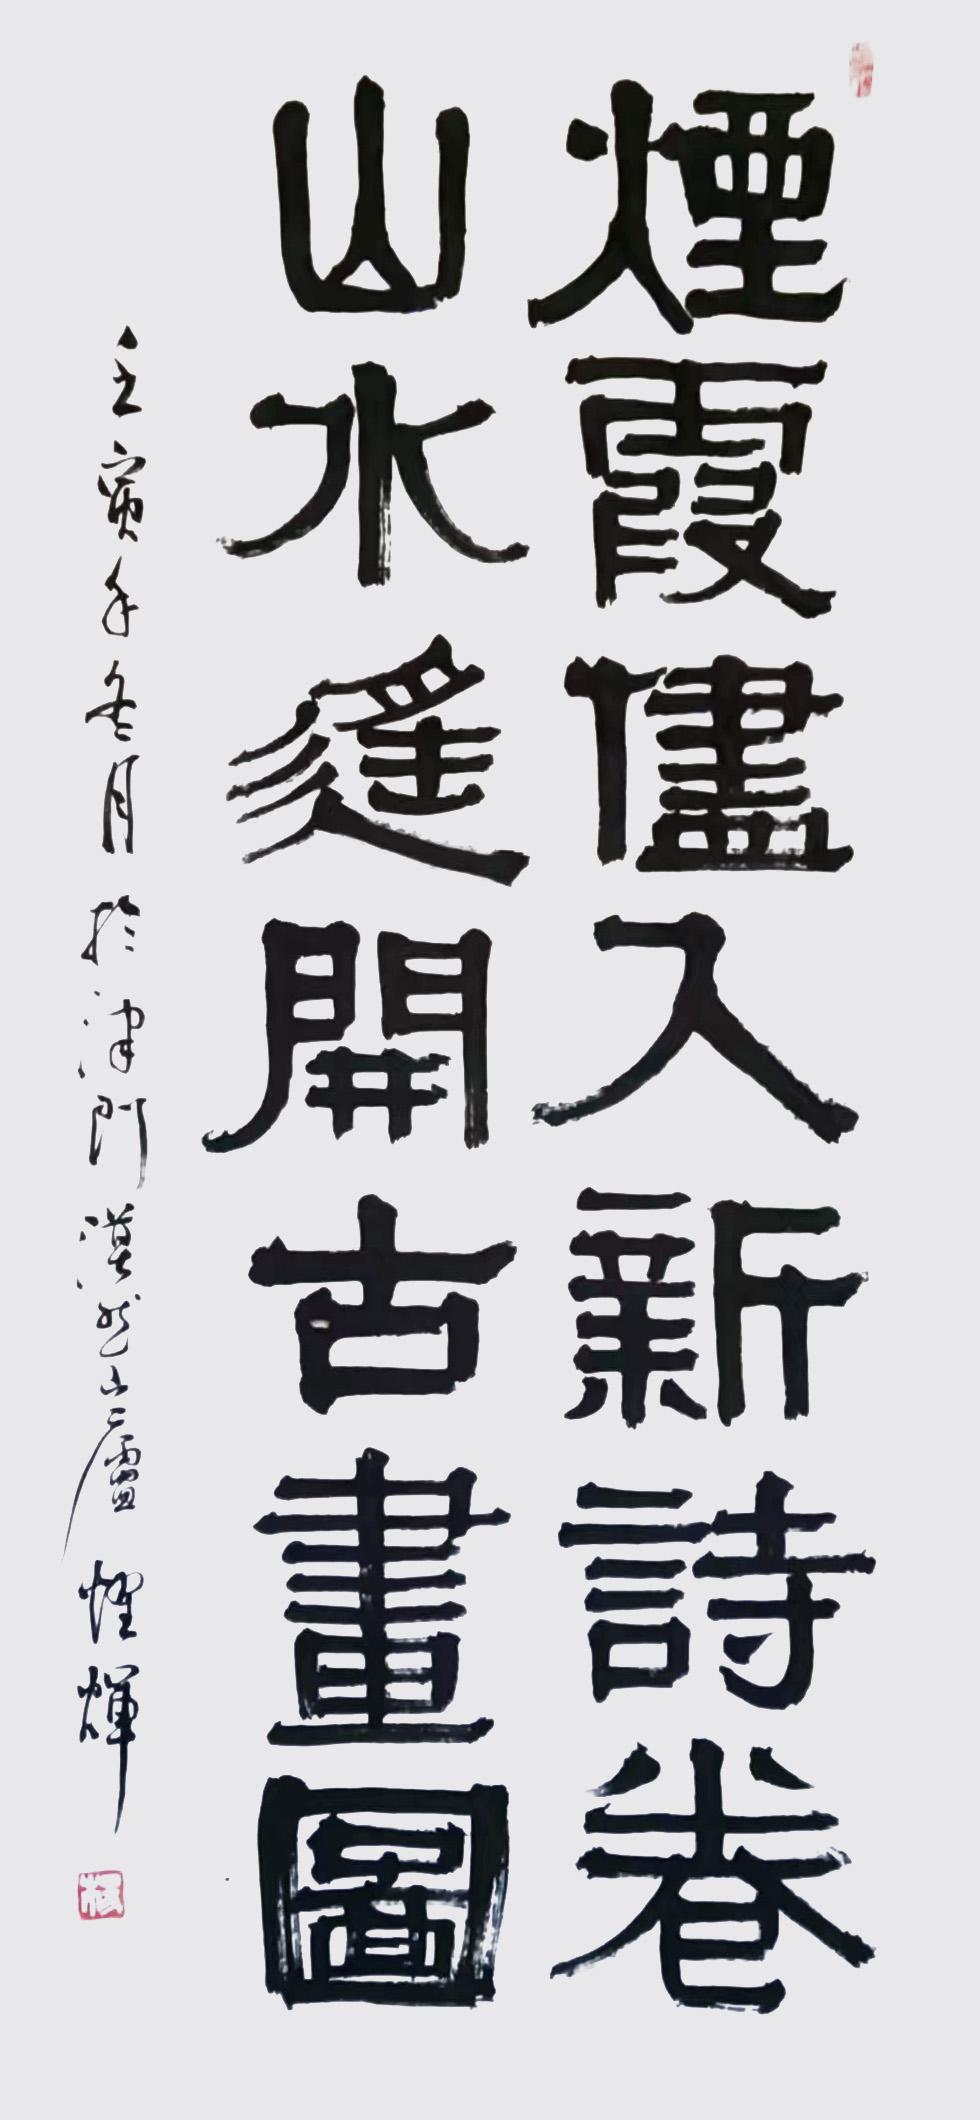 煙霞儘入新詩卷
山水遥開古畫圖
壬寅年冬月於津門漠然山廬 耀輝